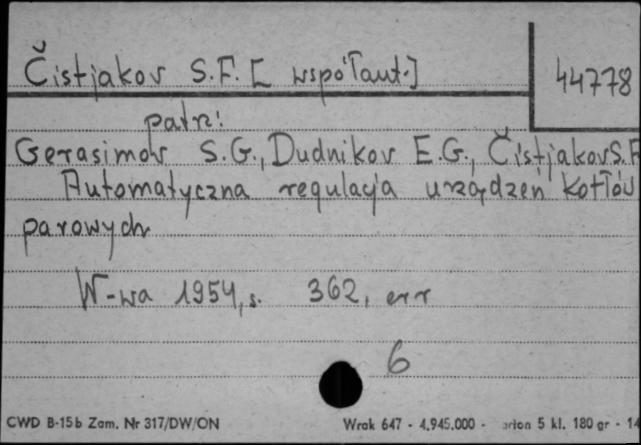 Čistjakov S.F. [współaut.]
44778
patrz:
Gerasimov S.G., Dudnikov E.G., Čistjakov S.F
Automatyczna regulacja urządzeń kotłów
parowych
W-wa 1954, s. 362, err
6
CWD B-15b Zam. Nr 317/DW/ON
Wrak 647 - 4.945.000 - 5 kl. 180 gr - 1